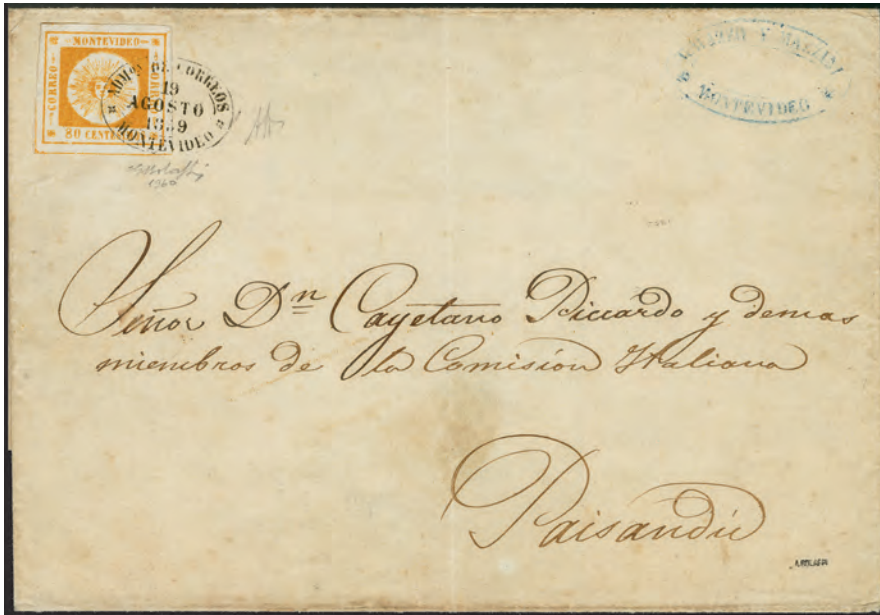 MONTEVIDEO
CORREO
80 CENTES
ADMON DE CORREOS
19
AGOSTO
MONTEVIDEO
1960
MONTEVIDEO
Señor Dn Cayetano Piccardo y demas
miembros de la Comision Italiana
Paisandú
A.BOLAFFI